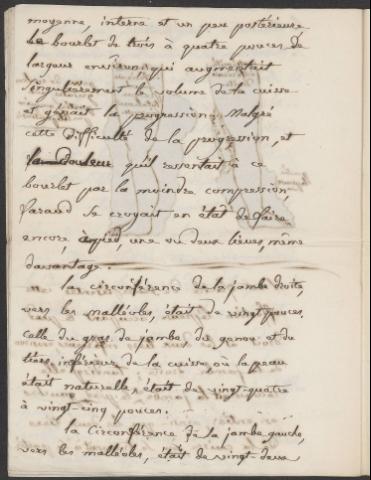 moyenne, interne et un peu postérieure
Le bourlet de trois à quatre pouces de
largeur environ, qui augmentait
singulierement le volume de la cuisse
et gênait la progression; Malgré
cette difficulté de la progression, et
la douleur qu'il ressentait à ce
bourlet par la moindre compression,
faraud se croyait en état de faire
encore, à pied, une ou deux lieues, même
davantage.
la circonférence de la jambe droite,
vers les malléoles, était de vingt pouces,
celle du gras de jambe, du genou, et du
tiers inférieur de la cuisse où la peau
était naturelle, était de vingt-quatre
à vingt-cinq pouces.
la Circonférence de la jambe gauche,
vers les malléoles, était de vingt-deux